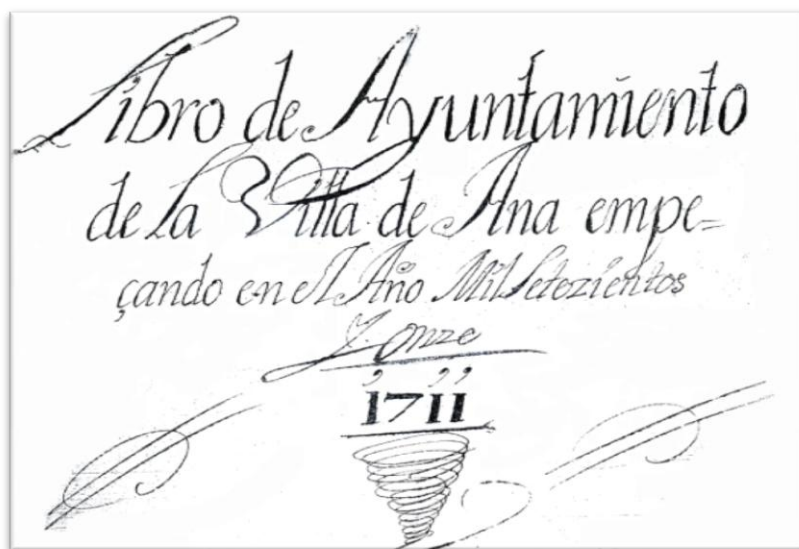 Libro de Ayuntamiento
de la Villa de Ana empe=
çando en el Año Mil Setezientos
Y Onze
1711